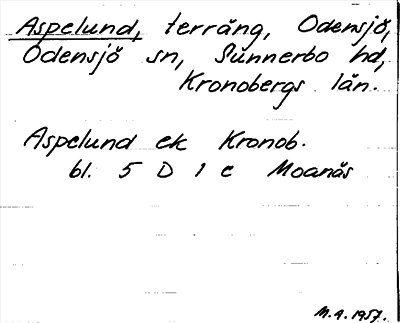 Aspelund, terräng, Odensjö,
Odensjö sn, Sunnerbo hd,
Kronobergs län.
Aspelund ek Kronob.
bl. 5 D 1 e Moanäs
M.A. 1957.